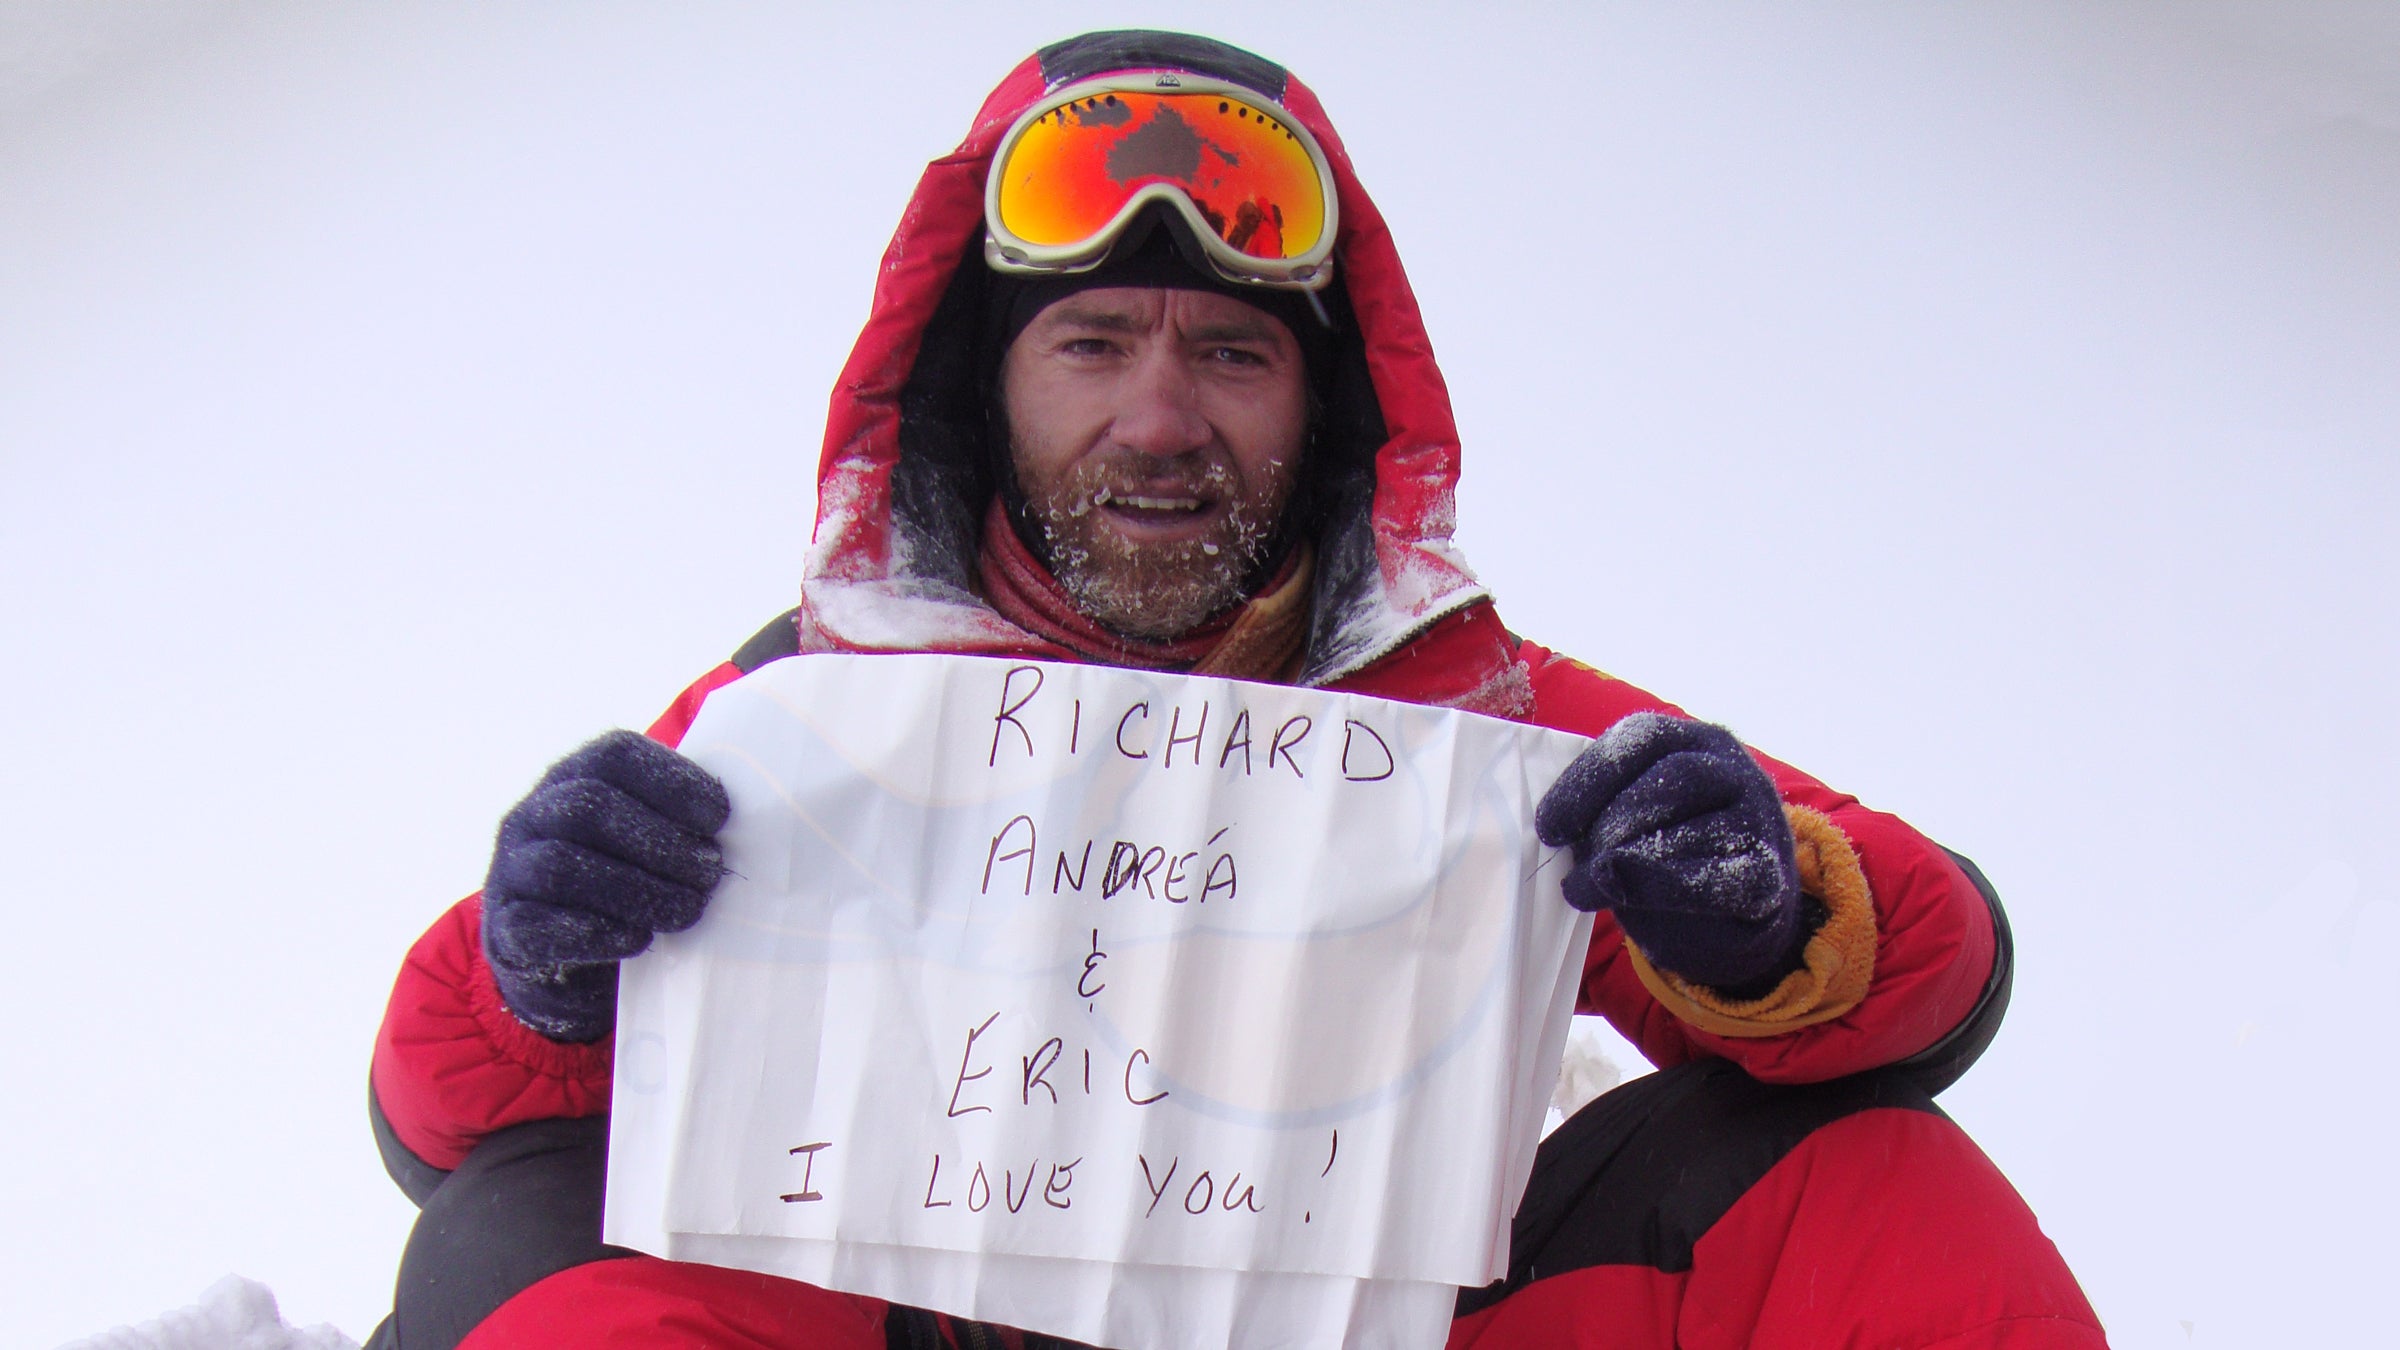 RICHARD
ANDREÁ
&
ERIC
I LOVE YOU!